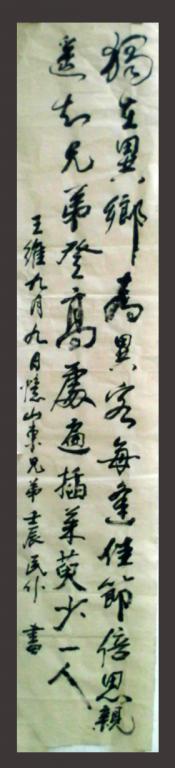 獨在異鄉為異客每逢佳節倍思親
遙知兄弟登高處遍插茱萸少一人
王維九月九日憶山東兄弟 壬辰 書